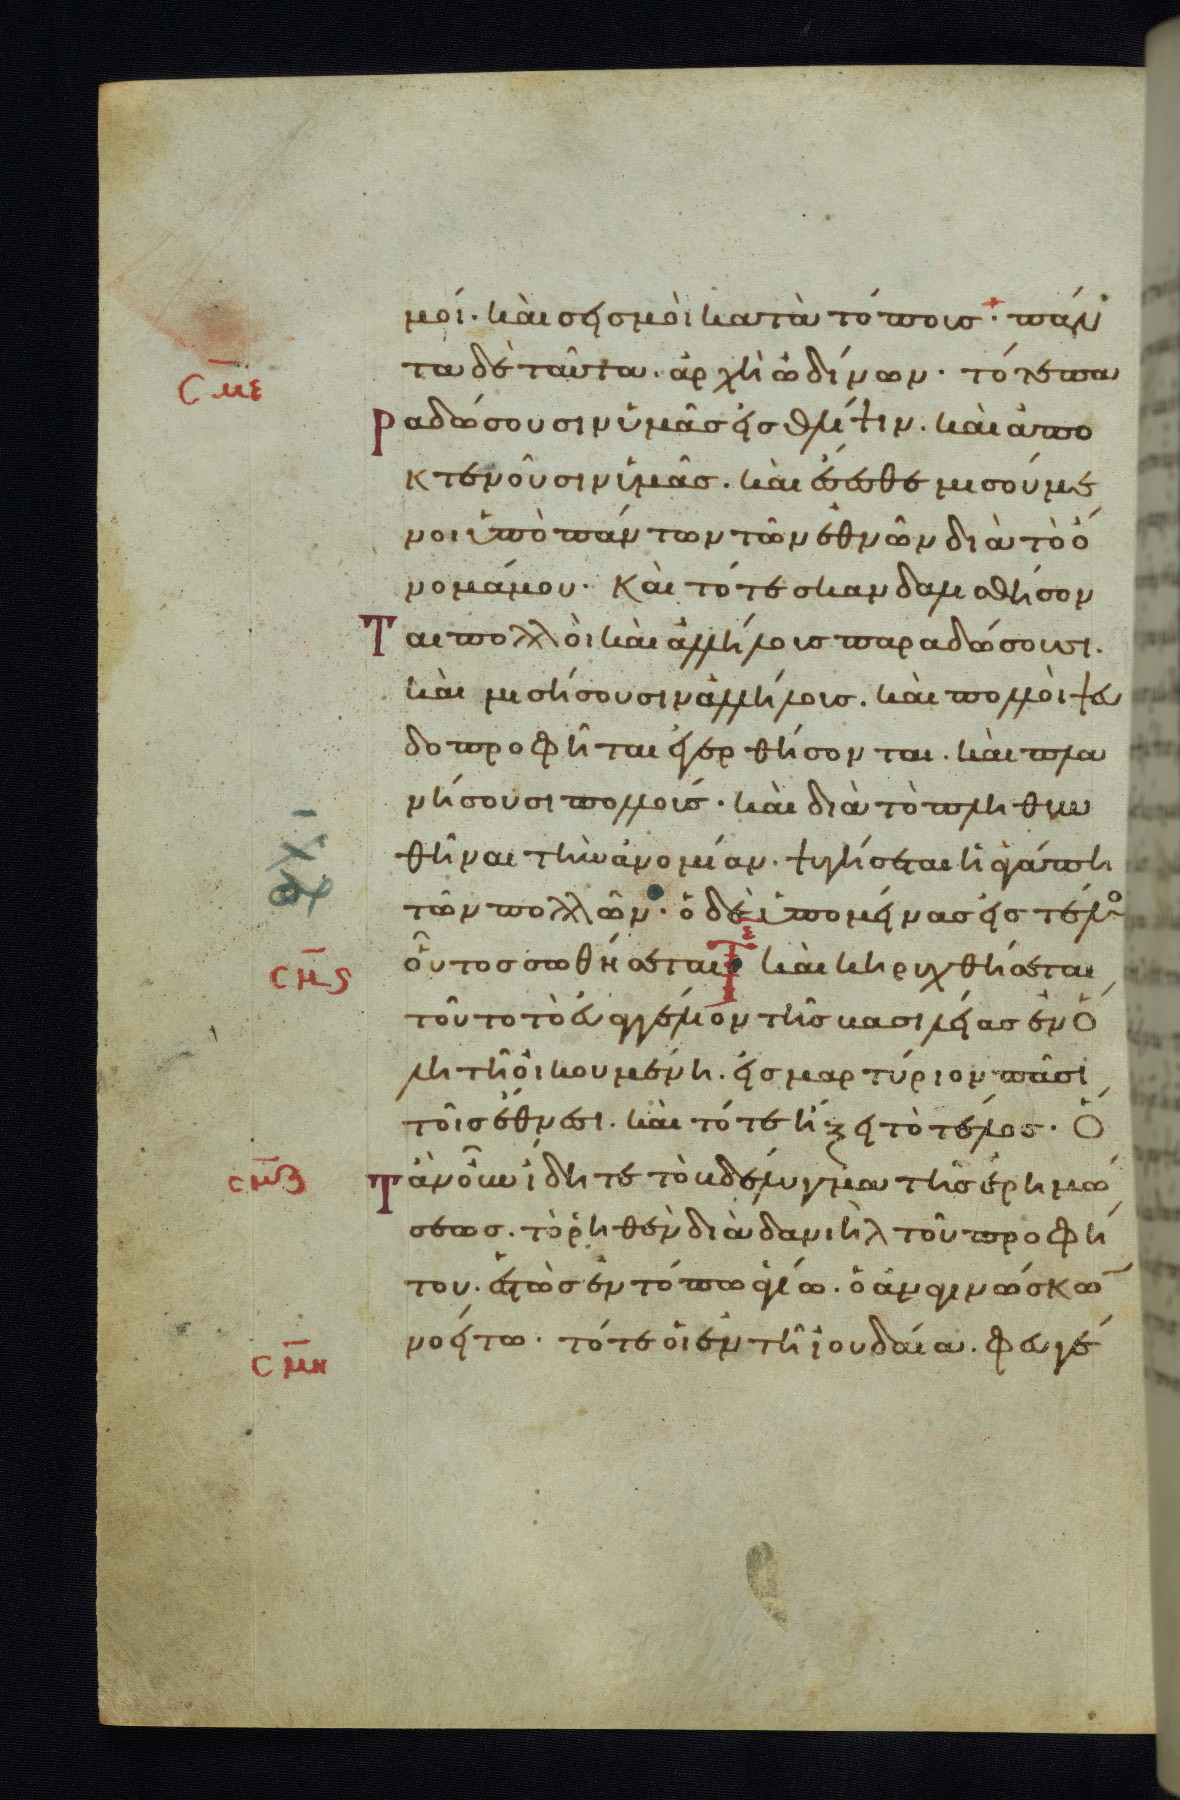 μοί· καὶ σεισμοὶ κατὰ τόπους· πάν
τα δὲ ταῦτα. ἀρχὴ ὠδίνων· τότε πα
σμε
ραδώσουσιν ὑμᾶς εἰς θλίψιν. καὶ ἀπο
κτενοῦσιν ὑμᾶς. καὶ ἔσεσθε μισούμε
νοι ὑπὸ πάντων τῶν ἐθνῶν διὰ τὸ ὄ
νομά μου· Καὶ τότε σκανδαλισθήσον
Ται πολλοὶ καὶ ἀλλήλους παραδώσουσι.
καὶ μισήσουσιν ἀλλήλους. καὶ πολλοὶ ψευ
δοπροφῆται ἐγερθήσονται. καὶ πλα
νήσουσι πολλούς· καὶ διὰ τὸ πληθυν
θῆναι τὴν ἀνομίαν. ψυγήσεται ἡ ἀγάπη
τῶν πολλῶν· ὁ δὲ ὑπομείνας εἰς τέλο
σμς
οὗτος σωθήσεται· καὶ κηρυχθήσεται
τοῦτο τὸ εὐαγγέλιον τῆς βασιλείας ἐν ὅ
λη τῆ οἰκουμένη. εἰς μαρτύριον πᾶσι
τοῖς ἔθνεσι. καὶ τότε ἥξει τὸ τέλος· Ὅ
σμζ
Ταν οὖν ἴδητε τὸ βδέλυγμα τῆς ἐρημώ
σεως. τὸ ῥηθὲν διὰ δανιὴλ τοῦ προφή
του. ἑστὼς ἐν τόπω ἁγίω. ὁ ἀναγινώσκω
σμη
νοείτω· τότε οἱ ἐν τῆ ἰουδαία. φευγέ